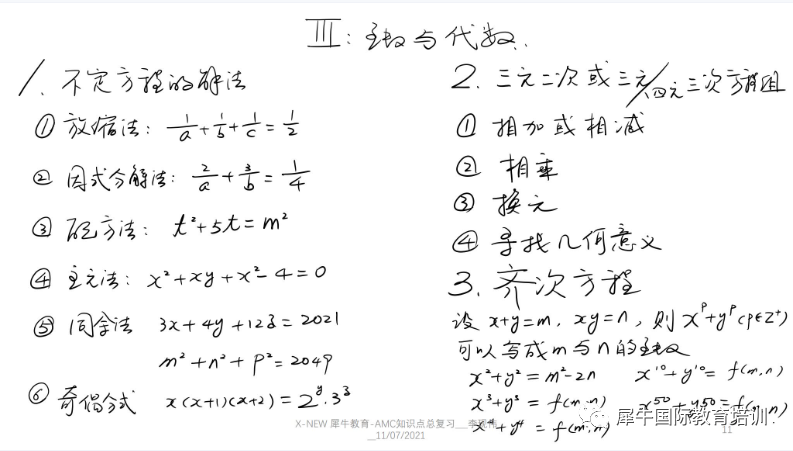 III: 函数与代数.
1. 不定方程的解法
① 放缩法: 1/a + 1/b + 1/c = 1/2
② 因式分解法: 2/a + 3/b = 1/4
③ 配方法: t²+5t = m²
④ 主元法: x²+xy+x²-4=0
⑤ 同余法 3x+4y+12z=2021
m²+n²+p²=2049
⑥ 奇偶分式 x(x+1)(x+2)=2^y·3^z
2. 三元二次或三元/四元三次方程组
① 相加或相减
② 相乘
③ 换元
④ 寻找几何意义
3. 齐次方程
设 x+y=m, xy=n, 则 x^p+y^p (p∈Z⁺)
可以写成m与n的函数
x²+y²=m²-2n x¹⁰+y¹⁰=f(m,n)
x³+y³=f(m,n) x⁵⁰+y⁵⁰=f(m,n)
x⁴+y⁴=f(m,n)
犀牛国际教育培训
X-NEW 犀牛教育-AMC知识点总复习__李
__11/07/2021
11